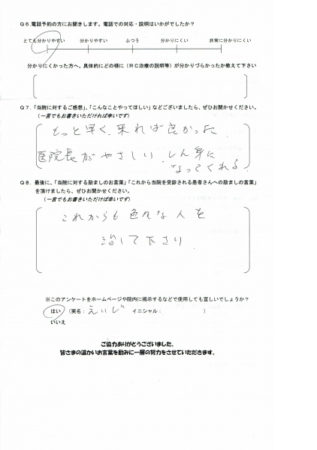 Q6.電話予約の方にお聞きします。電話での対応・説明はいかがでしたか?
とても分かりやすい 分かりやすい ふつう 分かりにくい 非常に分かりにくい
分かりにくかった方へ、具体的にどの様に(HC治療の説明等)が分かりづらかったか教えて下さい
Q7.「当院に対するご感想」、「こんなことやってほしい」などございましたら、ぜひお聞かせください。
(一言でもお書きいただければ幸いです)
もっと早く来れば良かった
医院長がやさしい しん身に
なってくれる
Q8.最後に、「当院に対する励ましのお言葉」「これから当院を受診される患者さんへの励ましの言葉」
を頂けましたら、ぜひお聞かせください。
(一言でもお書きいただければ幸いです)
これからも色んな人を
治して下さい
※このアンケートをホームページや院内に掲示するなどで使用しても宜しいでしょうか?
はい (実名:えいじ イニシャル: )
いいえ
ご協力ありがとうございました。
皆さまの温かいお言葉を励みに一層の努力をさせていただきます。